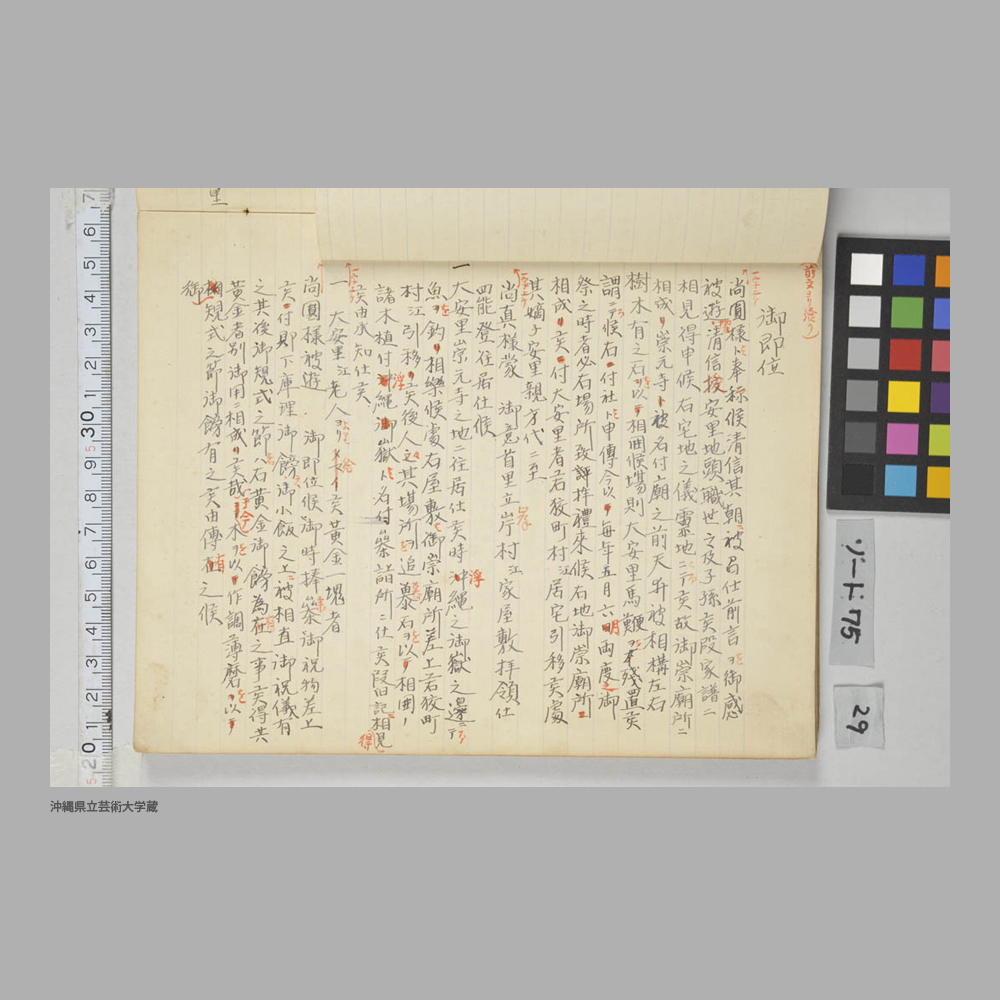 御即位
尚圓様ト奉称候清信其朝ニ被召仕前言ヲ御感
被遊清信授安里地頭職世之及子孫亥段家譜ニ
相見得申候右宅地之儀霊地ニ而亥故御崇廟所ニ
相成リ崇元寺ト被名付廟之前天井被相構左右
樹木有之石ヲ以テ相囲候場則大安里馬艱ヲ本残置亥
謂ニ而候右ニ付社ト申傳今以テ毎年五月六明両度之御
祭之時者必右場所致拝禮来候右地御崇廟所ニ
相成リ亥ニ付大安里者若狭町村江居宅引移亥處
其嫡子安里親方代ニ至
尚真様蒙 御意首里立岸村江家屋敷拝領仕
罷登住居仕候
一 大安里崇元寺之地ニ住居仕亥時沖縄之御嶽之邊ニ而
魚ヲ釣リ相樂候處右屋敷御崇廟所差上若狭町
村江引移リ亥後人之其場所ヲ追慕石ヲ以テ相囲リ
諸木植付沖縄御嶽ト名付築詣所ニ仕亥段旧記相見
得亥由承知仕亥
一 大安里江老人ヨリ亥黄金一塊者
尚圓様被遊 御即位候御時捧築御祝物差上
亥付則下庫理御飾御小飯之上ニ被相直御祝儀有
之其後御規式之節ハ右黄金御飾為在之事亥得共
黄金者別御用ニ相成リ亥哉木ヲ以テ作調薄磨ヲ以テ
御規式之節御飾有之亥由傳有之候
沖縄県立芸術大学蔵
ゾード175
29